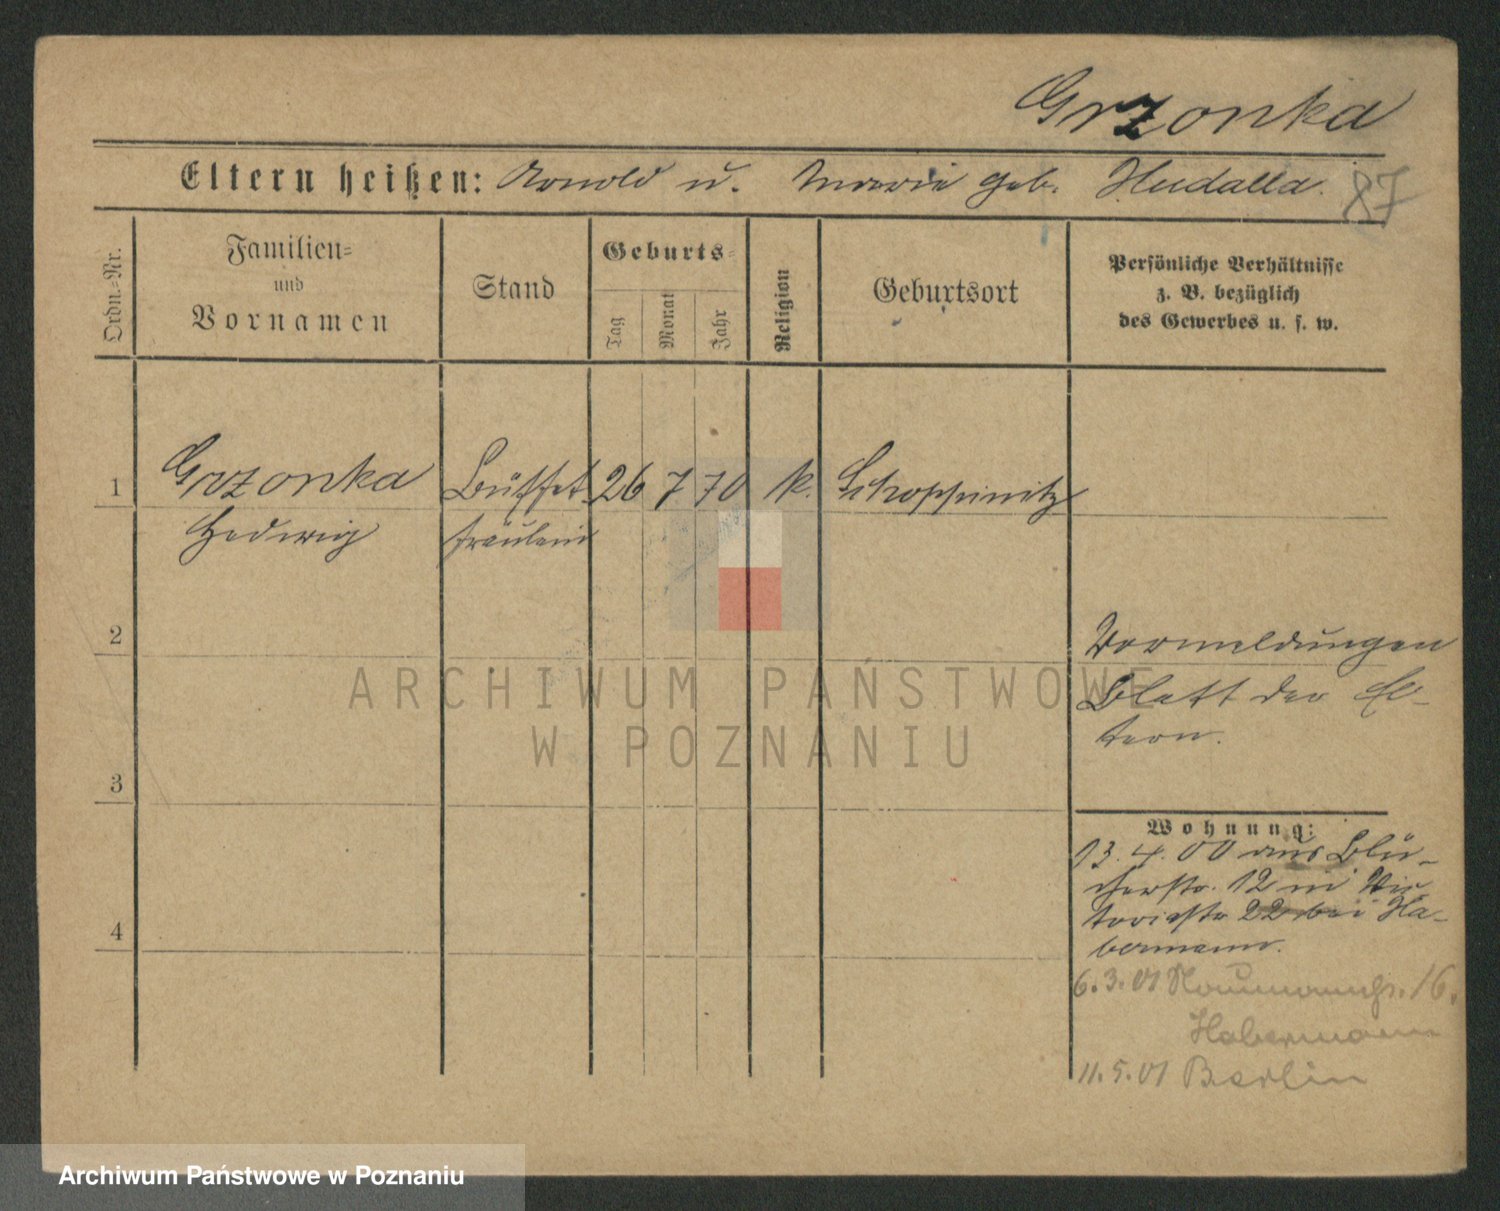 Grzonka
Eltern heißen: Arnold u. Marie geb. Hudalla. 87
Ordn.-Nr.
Familien-
und
Vornamen
Stand
Geburts-
Tag
Monat
Jahr
Religion
Geburtsort
Persönliche Verhältnisse
z. B. bezüglich
des Gewerbes u. s. w.
1 Grzonka Büffet- 26 7 70 k. Schoppinitz
Hedwig fräulein
2
Vormeldungen
Blatt der El-
tern.
3
Wohnung:
13.4.00 aus Blü-
cherstr. 12 in Vic-
toriastr 22 bei Ha-
bermann.
4
6.3.01 Naumannstr. 16.
Habermann
11.5.01 Berlin
ARCHIWUM PAŃSTWOWE
W POZNANIU
Archiwum Państwowe w Poznaniu